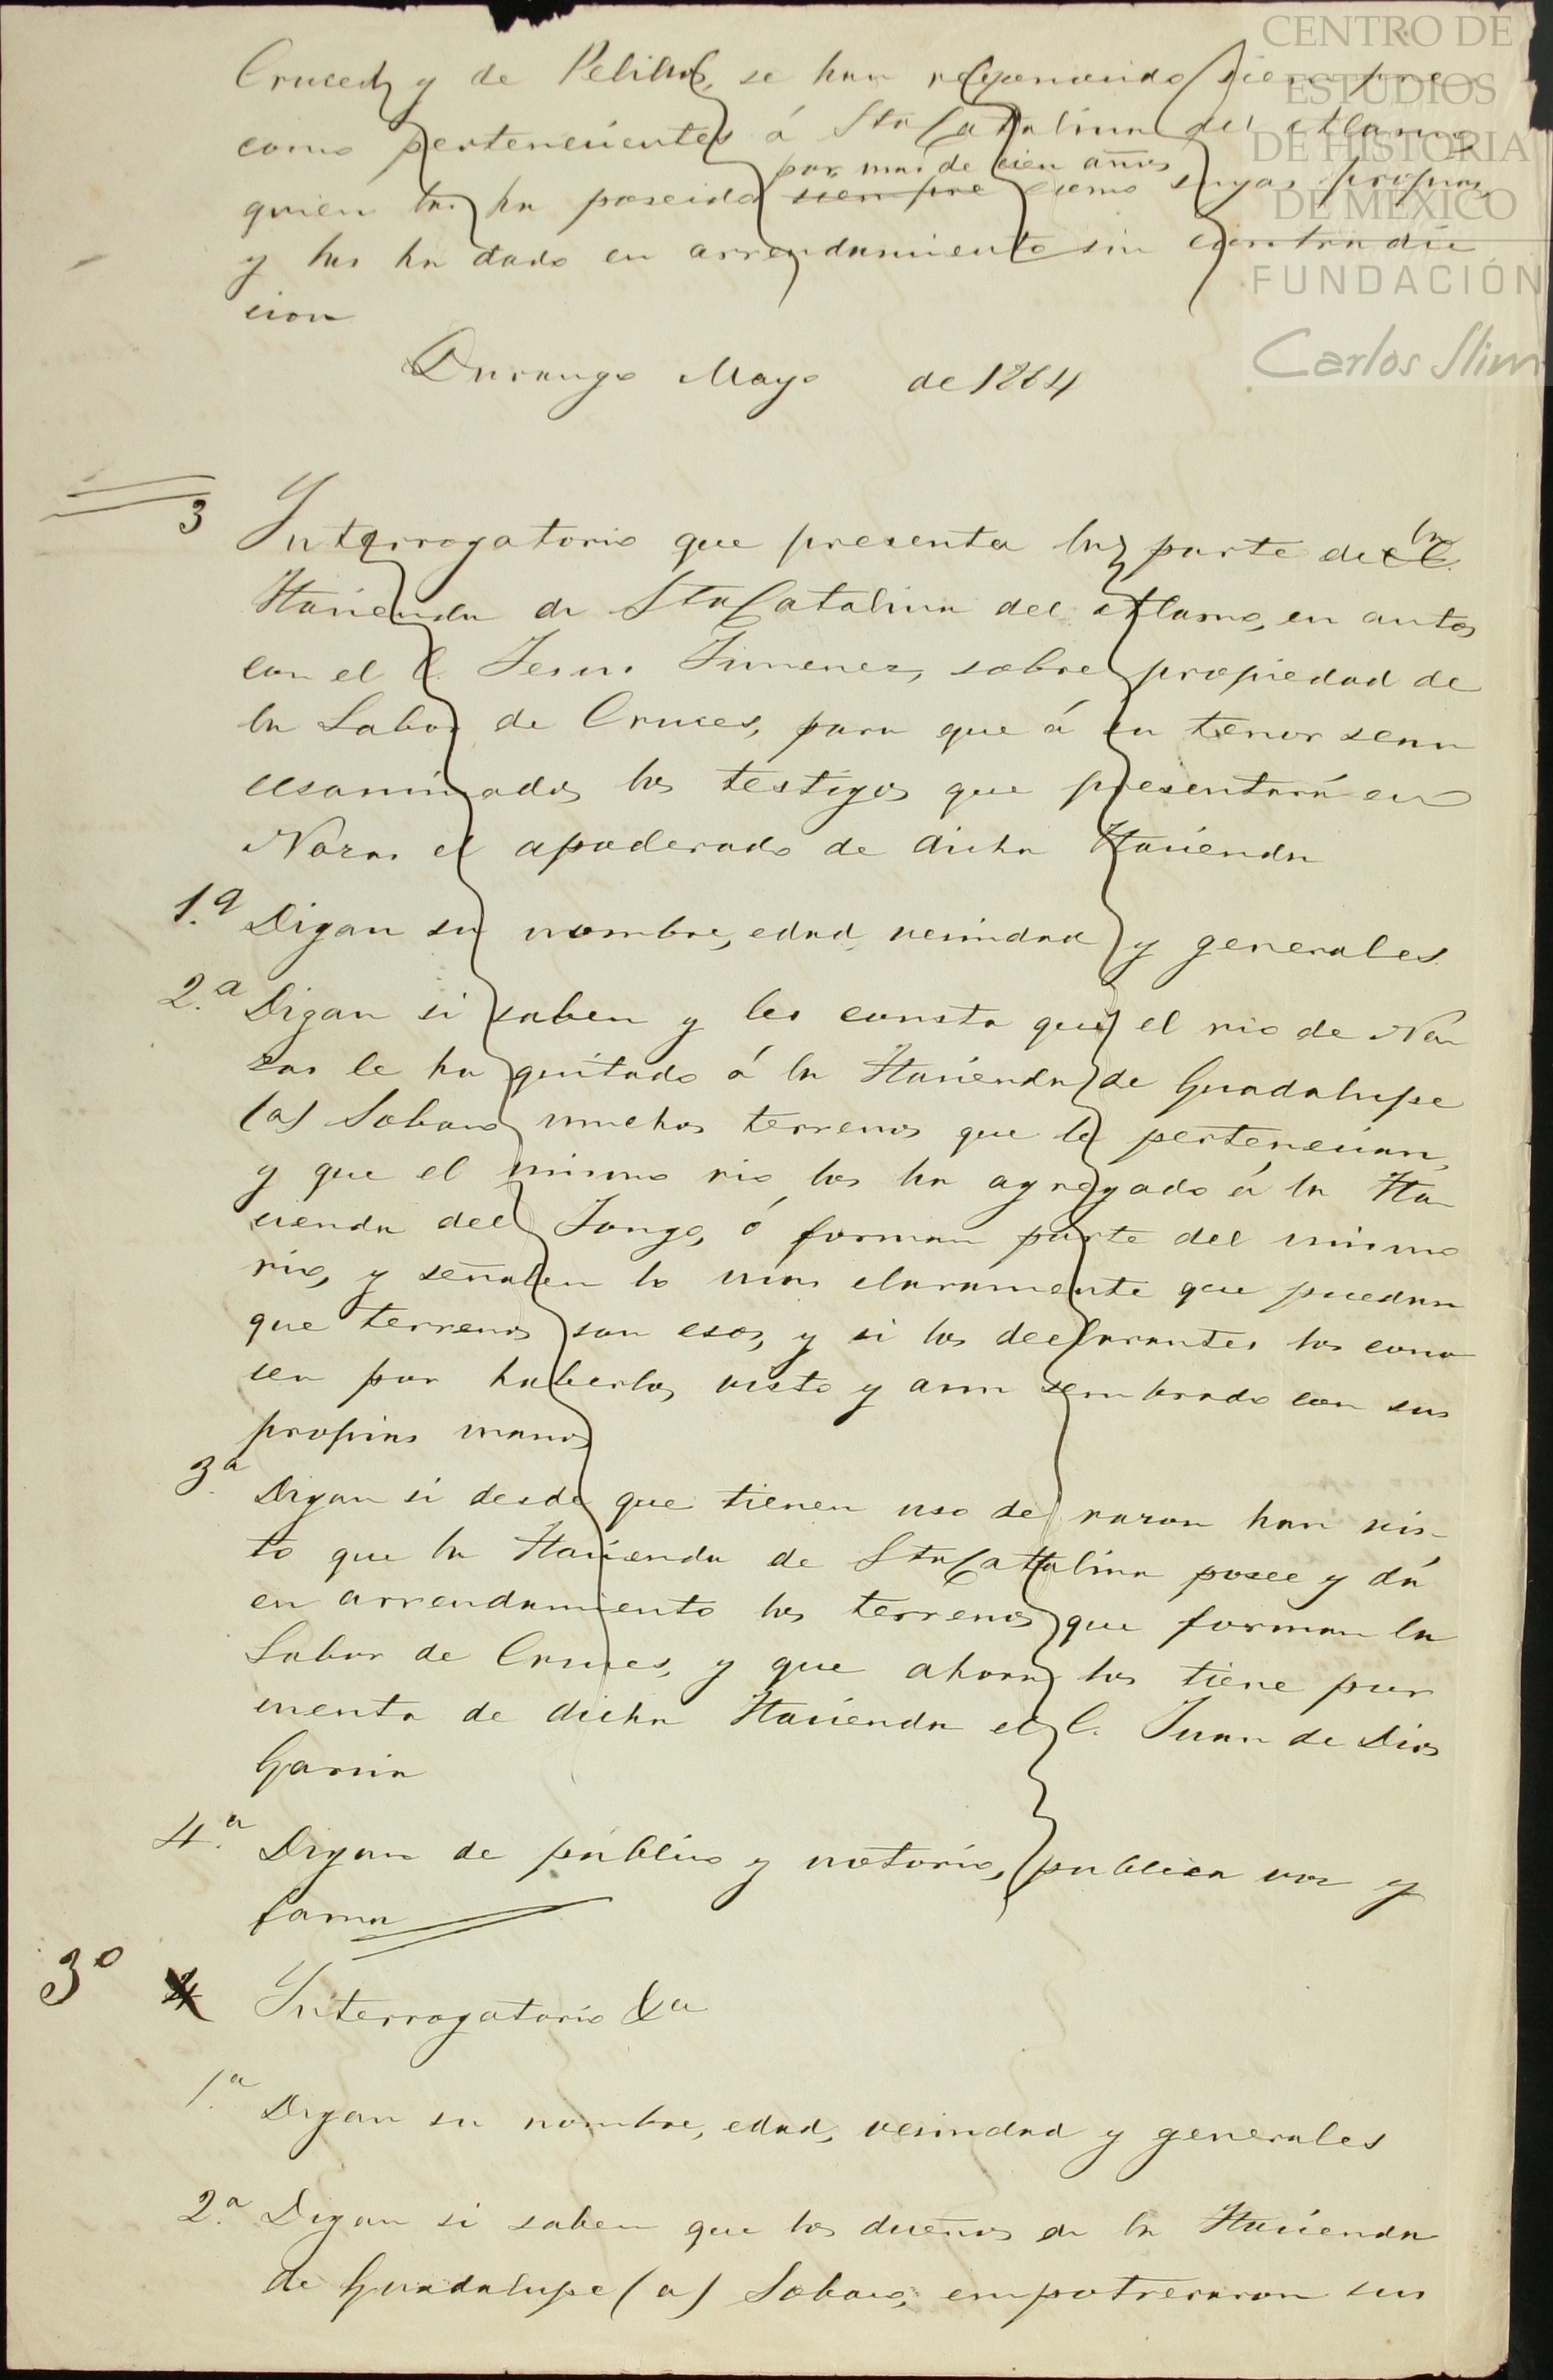 CENTRO DE
ESTUDIOS
DE HISTORIA
DE MÉXICO
FUNDACIÓN
Carlos Slim
Cruces y de Pelillos, se han reconocido siempre
como pertenecientes á Sta Catalina del Alamo
por mas de cien años
quien las ha poseido siempre como suyas propias,
y las ha dado en arrendamiento sin contradic
cion
Durango Mayo de 1864
3 Interrogatorio que presenta la parte de la
Hacienda de Sta Catalina del Alamo, en autos
con el C. Jesus Jimenez, sobre propiedad de
la Labor de Cruces, para que á su tenor sean
ecsaminados los testigos que presentará en
Nazas el apoderado de dicha Hacienda
1.a Digan su nombre, edad, vecindad y generales.
2.a Digan si saben y les consta que el rio de Na
zas le ha quitado á la Hacienda de Guadalupe
(a) Sobaco muchos terrenos que le pertenecian,
y que el mismo rio los ha agregado á la Ha
cienda del Jongo, ó forman parte del mismo
rio, y señalen lo mas claramente que puedan
que terrenos son esos, y si los declarantes los cono
cen por haberlos visto y aun sembrado con sus
propias manos
3.a Digan si desde que tienen uso de razon han vis-
to que la Hacienda de Sta Catalina posee y dá
en arrendamiento los terrenos que forman la
Labor de Cruces, y que ahora los tiene por
cuenta de dicha Hacienda el C. Juan de Dios
Garcia
4.a Digan de público y notorio, publica voz y
fama
3o 4 Interrogatorio &a
1.a Digan su nombre, edad, vecindad y generales
2.a Digan si saben que los dueños de la Hacienda
de Guadalupe (a) Sobaco, empotreraron sus